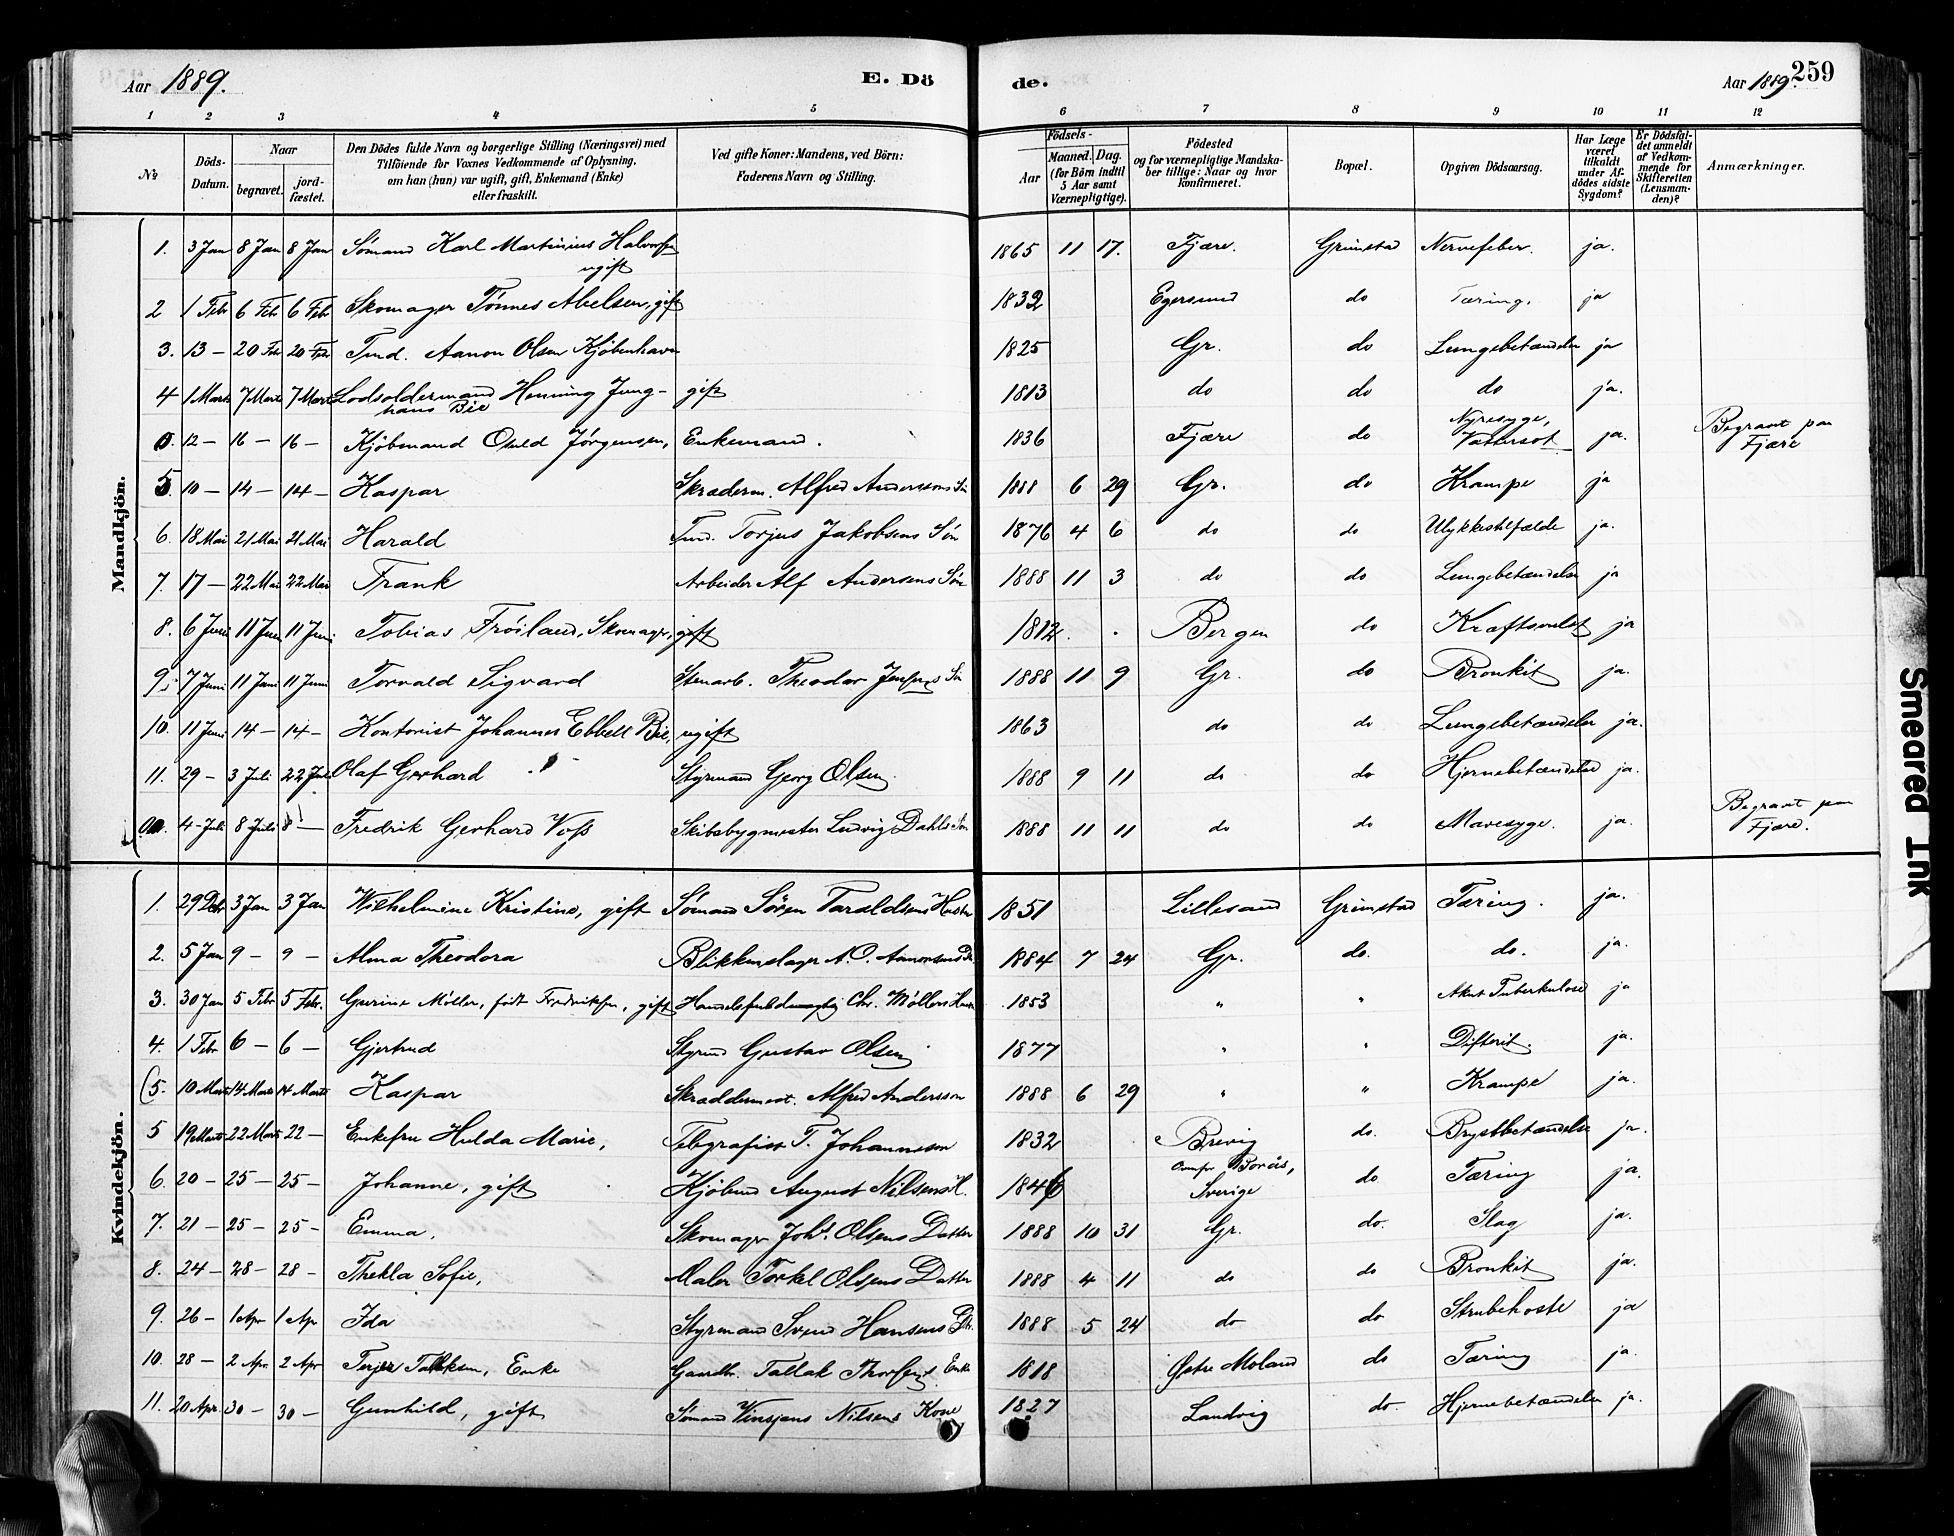 Aar 1889. E. Dö de. Aar 1889. 259
1 2 3 4 5 6 7 8 9 10 11 12
№ Döds-Datum. Naar begravet. jordfæstet. Den Dödes fulde Navn og borgerlige Stilling (Næringsvei) med Tilföiende for Voxnes Vedkommende af Oplysning, om han (hun) var ugift, gift, Enkemand (Enke) eller fraskilt. Ved gifte Koner: Mandens, ved Börn: Faderens Navn og Stilling. Födsels- Aar Maaned. Dag. (for Börn indtil 5 Aar samt Værnepligtige). Födested og for værnepligtige Mandskaber tillige: Naar og hvor konfirmeret. Bopæl. Opgiven Dödsaarsag. Har Læge været tilkaldt under Afdödes sidste Sygdom? Er Dödsfaldet anmeldt af Vedkommende for Skifteretten (Lensmanden)? Anmærkninger.
Mandkjön.
1. 3 Jan 8 Jan 8 Jan Sømand Karl Martinius Halvorsen ugift 1865 11 17. Fjære. Grimstad Nervefeber. ja.
2 1 Febr 6 Febr 6 Febr Skomager Tønnes Abelsen, gift 1832 Egersund do Tæring. ja
3. 13 – 20 Febr 20 Febr Tmd. Aanon Olsen Kjøbenhavn 1825 Gr. do Lungebetændelse ja
4 1 Marts 7 Marts 7 Marts Lodsoldermand Henning Junghans Bie gift 1813 do do do ja.
12 – 16 – 16 – Kjøbmand Osuld Jørgensen, Enkemand. 1836 Fjære do Nyresyge, Vattersot ja. Begravet paa Fjære
5. 10 – 14 – 14 – Kaspar Skræderm. Alfred Anderssons Søn 1888 6 29 Gr. do Krampe ja
6. 18 Mai 21 Mai 21 Mai Harald Tmd. Torjus Jakobsens Søn 1876 4 6 do do Ulykkestilfælde ja.
7. 17 – 22 Mai 22 Mai Frank Arbeider Alf Andersens Søn 1888 11 3 do do Lungebetændelse ja
8. 6 Juni 11 Juni 11 Juni Tobias Frøiland, Skomager, gift 1812. Bergen do Kræftsvulst ja
9. 7 Juni 11 Juni 11 Juni Torvald Sigvard Stenarb. Theodor Jensens Søn 1888 11 9 Gr. do Bronkit ja.
10. 11 Juni 14 – 14 – Kontorist Johannes Ebbell Bie, ugift 1863 do do Lungebetændelse ja.
11. 29 – 3 Juli 22 Juli Olaf Gerhard Styrmand Georg Olsen 1888 9 11 do do Hjernebetændelse ja.
4 Juli 8 Juli 8 – Fredrik Gerhard Voss Skibsbygmester Ludvig Dahls Søn 1888 11 11 do do Mavesyge. ja. Begravet paa Fjære.
Kvindekjön.
1. 29 Dcbr 3 Jan 3 Jan Wilhelmine Kristine, gift Sømand Søren Taraldsens Hustru 1851 Lillesand Grimstad Tæring. ja.
2. 5 Jan 9 – 9 – Alma Theodora Blikkenslager A. O. Aanonsens Dtr 1884 7 24 Gr. do. do. ja.
3. 30 Jan 5 Febr 5 Febr. Gurine Møller, født Fredriksen, gift Handelsfuldmægtig Chr. Møllers Hustru 1853 " " Akut Tuberkulose ja
4. 1 Febr 6 – 6 – Gjertrud Styrmd Gustav Olsen 1877 " " Difterit. ja.
(5. 10 Marts 14 Marts 14 Marts Kaspar Skræddermest. Alfred Andersson 1888 6 29 " " Krampe ja.
5 19 Marts 22 Marts 22 – Enkefru Hulda Marie, Telegrafist T. Johannesson 1832 Brevig do. Brystbetændelse ja.
6. 20 – 25 – 25 – Johanne, gift Kjøbmd August Nilsens H. 1846 Borås, Sverige do Tæring ja.
7. 21 – 25 – 25 – Emma, Skomager Johs. Olsens Datter 1888 10 31 Gr. do. Slag ja.
8. 24 – 28 – 28 – Thekla Sofie, Maler Torkel Olsens Datter 1888 4 11 do do Bronkit ja.
9. 26 – 1 Apr 1 Apr Ida Styrmand Svend Hansens Dtr. 1888 5 24 do do Strubehoste ja
10. 28 – 2 Apr. 2 Apr Terjer Tallaksen, Enke Gaardbr. Tallak Thorsens Enke 1818 Østre Moland do Tæring ja.
11. 20 Apr. 30 – 30 – Gunhild, gift Sømand Vinsjans Nilsens Kone 1827 Landvig do. Hjernebetændelse ja.
Smeared Ink